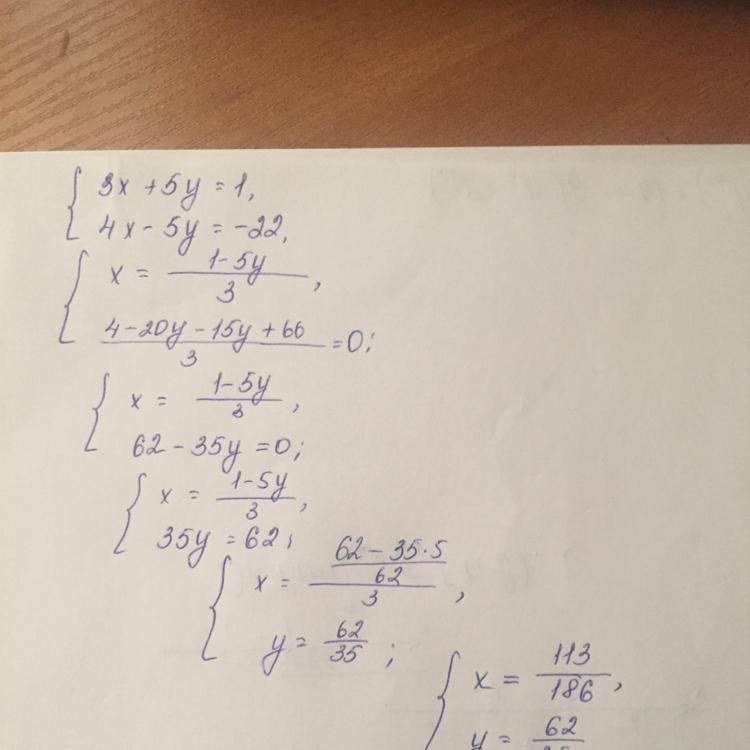 3x + 5y = 1,
4x - 5y = -22,
x = \frac{1-5y}{3},
\frac{4-20y-15y+66}{3} = 0;
x = \frac{1-5y}{3},
62 - 35y = 0;
x = \frac{1-5y}{3},
35y = 62;
x = \frac{\frac{62-35·5}{62}}{3},
y = \frac{62}{35};
x = \frac{113}{186},
y = 62